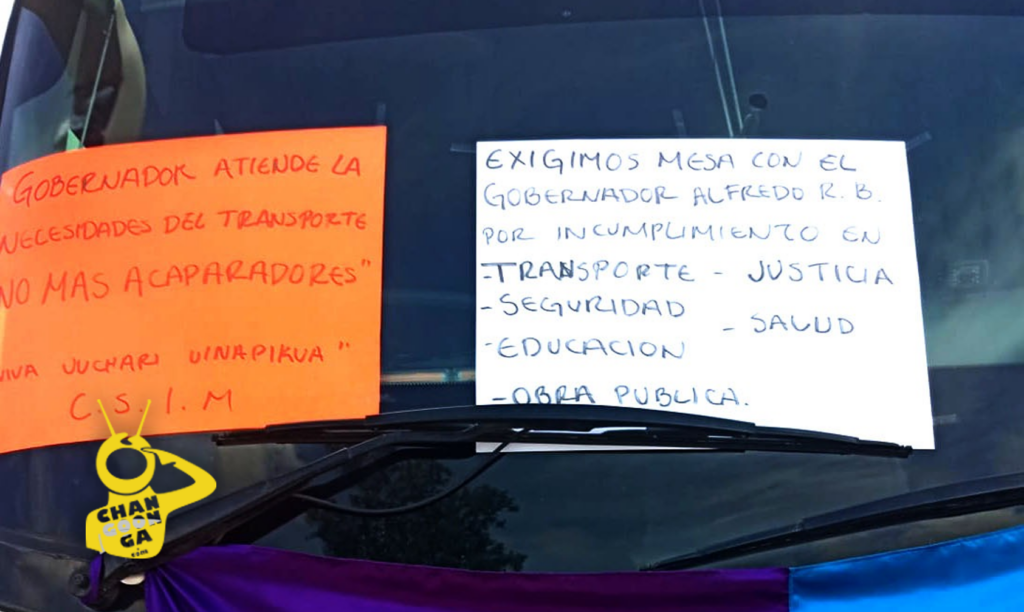 GOBERNADOR ATIENDE LA
NECESIDADES DEL TRANSPORTE
NO MAS ACAPARADORES"
VIVA JUCHARI UINAPIKUA"
C.S.I.M
EXIGIMOS MESA CON EL
GOBERNADOR ALFREDO R. B.
POR INCUMPLIMIENTO EN
-TRANSPORTE - JUSTICIA
-SEGURIDAD
- SALUD
-EDUCACION
-OBRA PUBLICA.
CHAN
GOON
GA